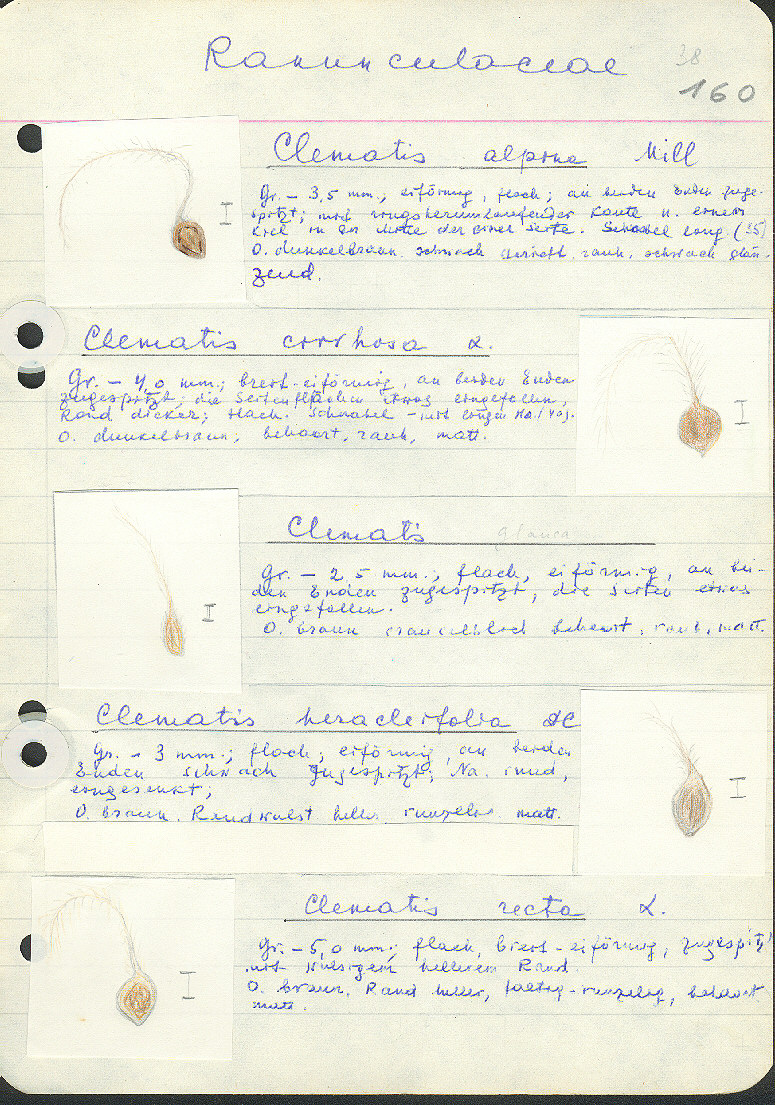 Ranunculaceae
38
160
Clematis alpina Mill
Gr. - 3,5 mm., eiförmig, flach; an beiden Enden zuge-
spitzt; mit ringsherumlaufender Kante u. einem
Kiel in der Mitte der einen Seite. Schnabel lang (35)
O. dunkelbraun, schwach gerieft, rauh, schwach glän-
zend.
Clematis cirrhosa L.
Gr. - 4,0 mm.; breit-eiförmig, an beiden Enden
zugespitzt; die Seitenflächen etwas eingefallen,
Rand dicker; flach. Schnabel - mit langen Ha. (40).
O. dunkelbraun, behaart, rauh, matt.
Clematis glauca
Gr. - 2,5 mm.; flach, eiförmig, an bei-
den Enden zugespitzt, die Seiten etwas
eingefallen.
O. braun, behaart, rauh, matt.
Clematis heracleifolia DC
Gr. - 3 mm.; flach; eiförmig, an beiden
Enden schwach zugespitzt; Na. rund,
eingesenkt;
O. braun, Randwulst heller, runzelig, matt.
Clematis recta L.
Gr. - 5,0 mm.; flach, breit-eiförmig, zugespitzt
mit wulstigem hellerem Rand.
O. braun, Rand heller, faltig-runzelig, behaart
matt.